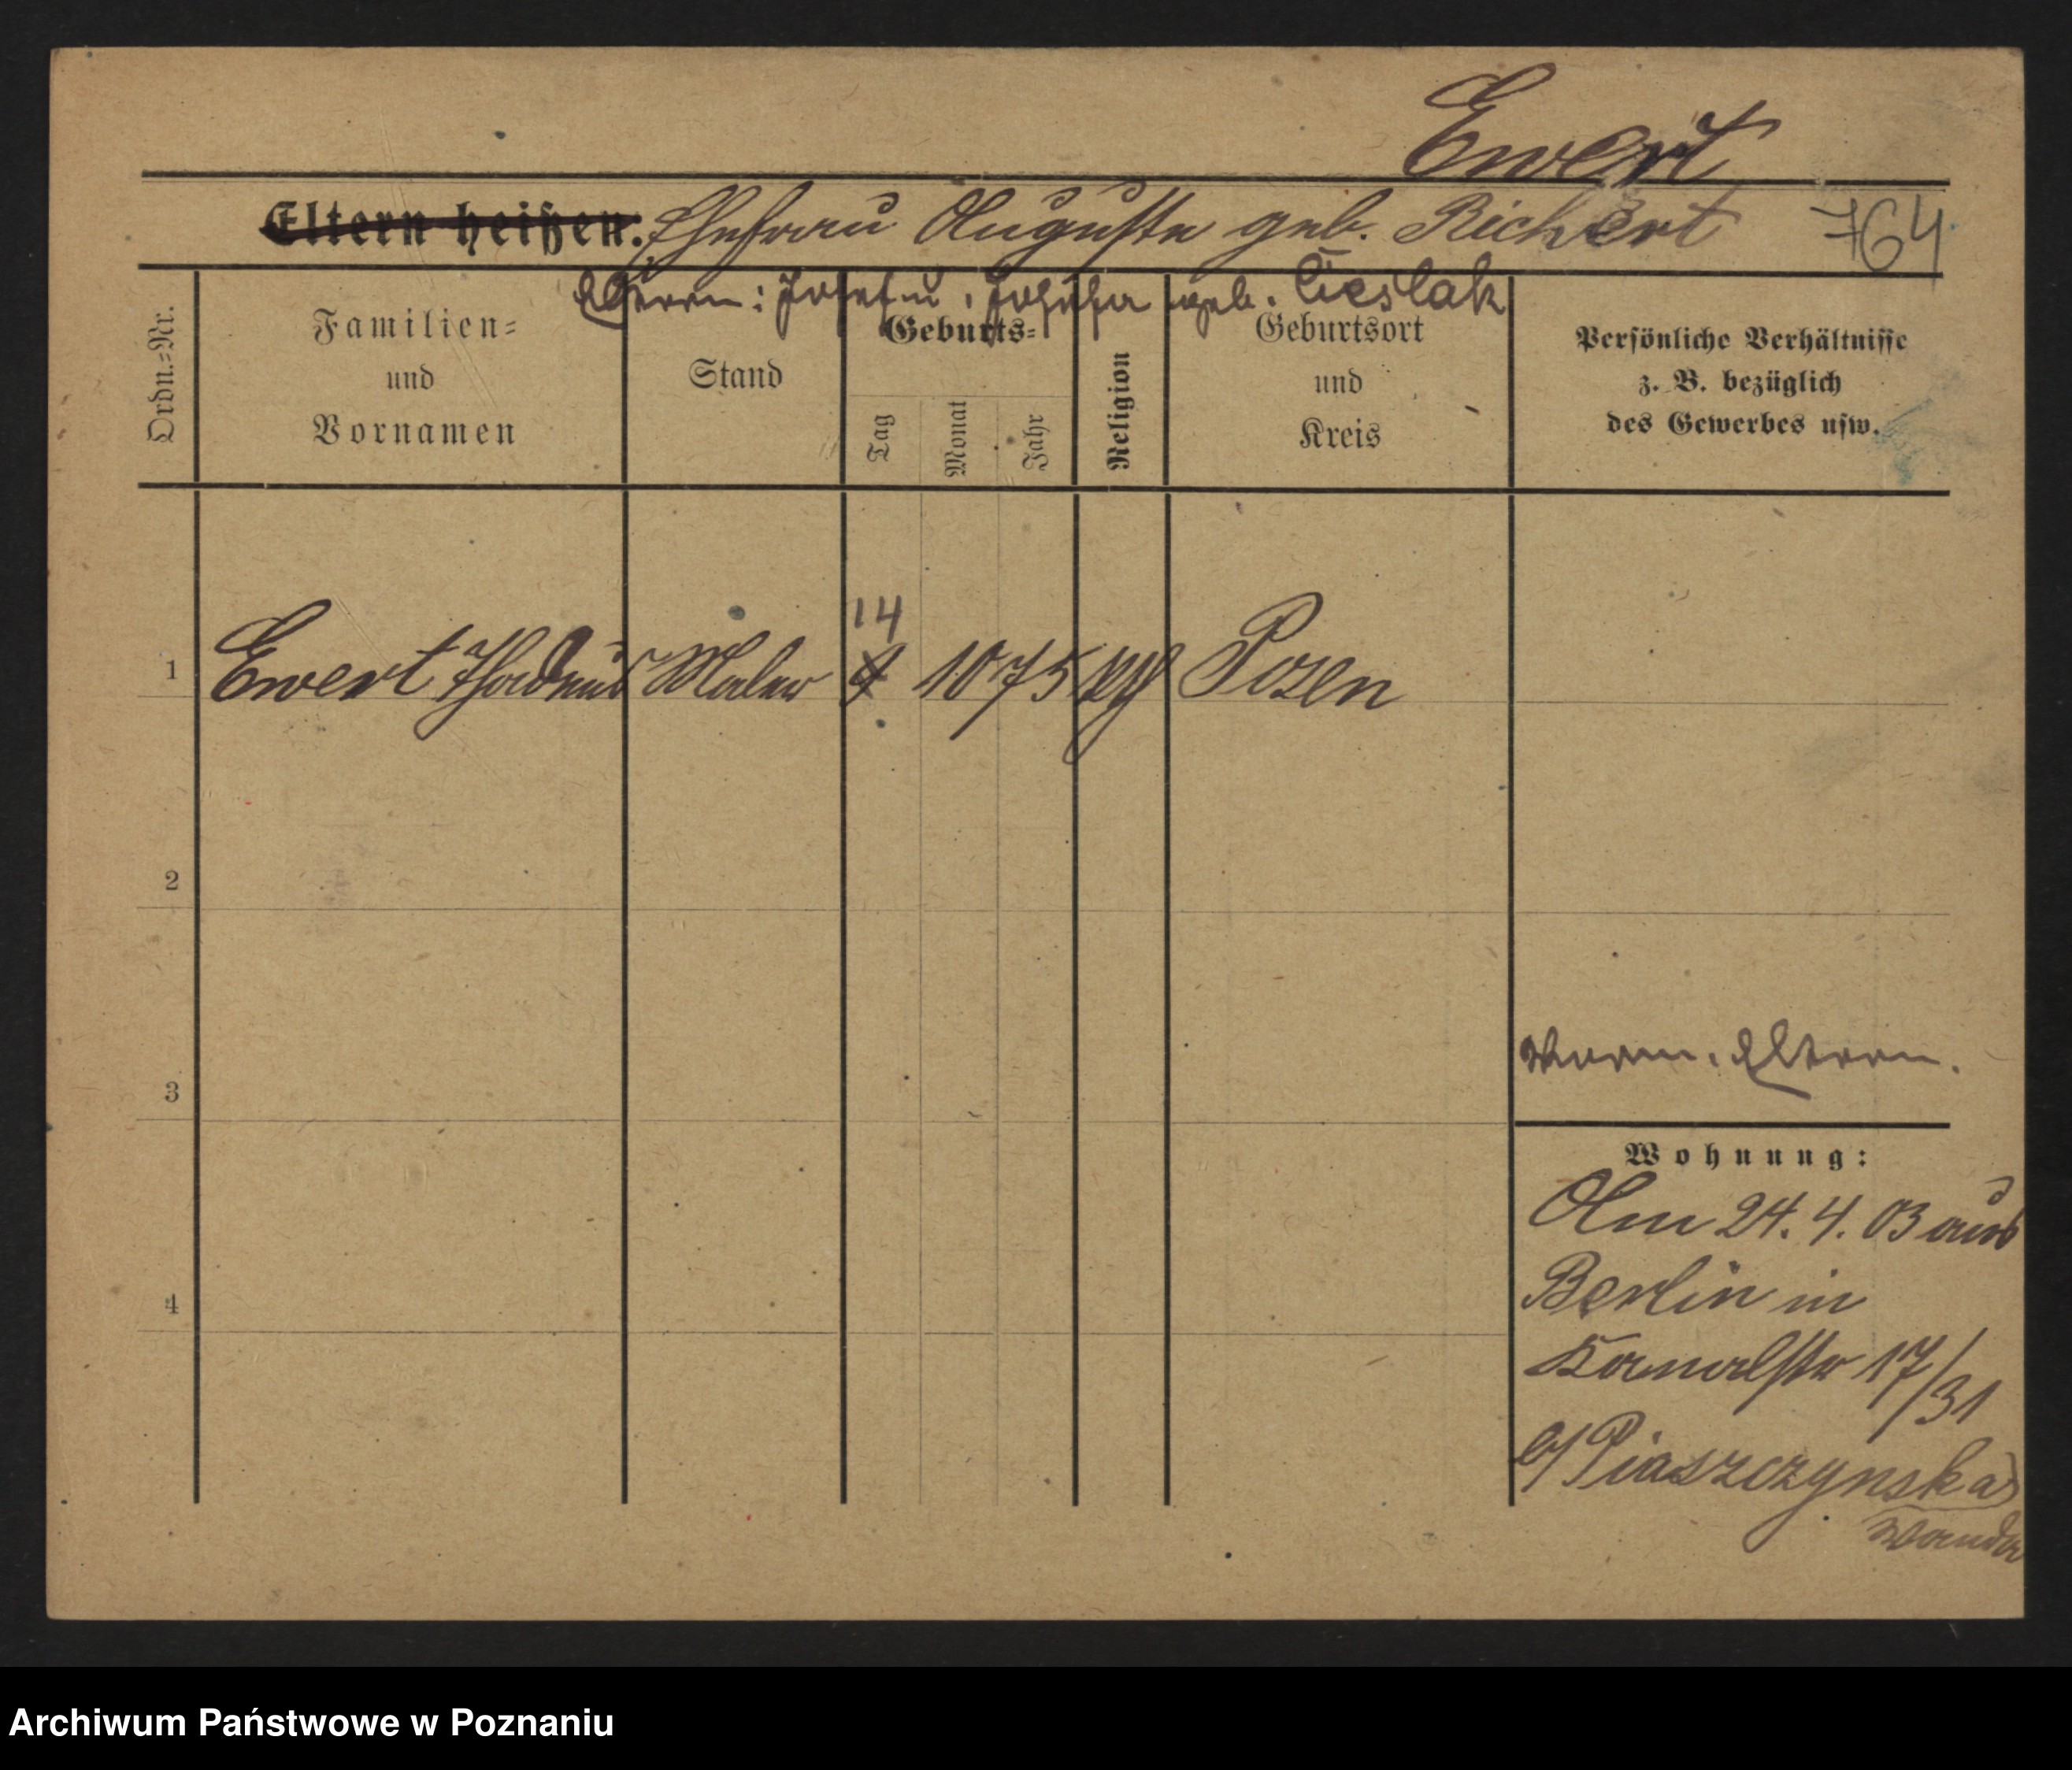 Ewert
Eltern heißen: Ehefrau Auguste geb. Richert 764
Eltern: Josef u. Josefa geb. Cieslak
Ordn.=Nr.
Familien=
und
Vornamen
Stand
Geburts=
Tag
Monat
Jahr
Religion
Geburtsort
und
Kreis
Persönliche Verhältnisse
z. B. bezüglich
des Gewerbes usw.
14
1 Ewert Thadeus Maler 9 10 75 Posen
2
3
Eltern.
Wohnung:
Am 24. 4. 03 aus
Berlin in
4
Kanalstr 17/31
b/ Piaszczynska
Wanda
Archiwum Państwowe w Poznaniu